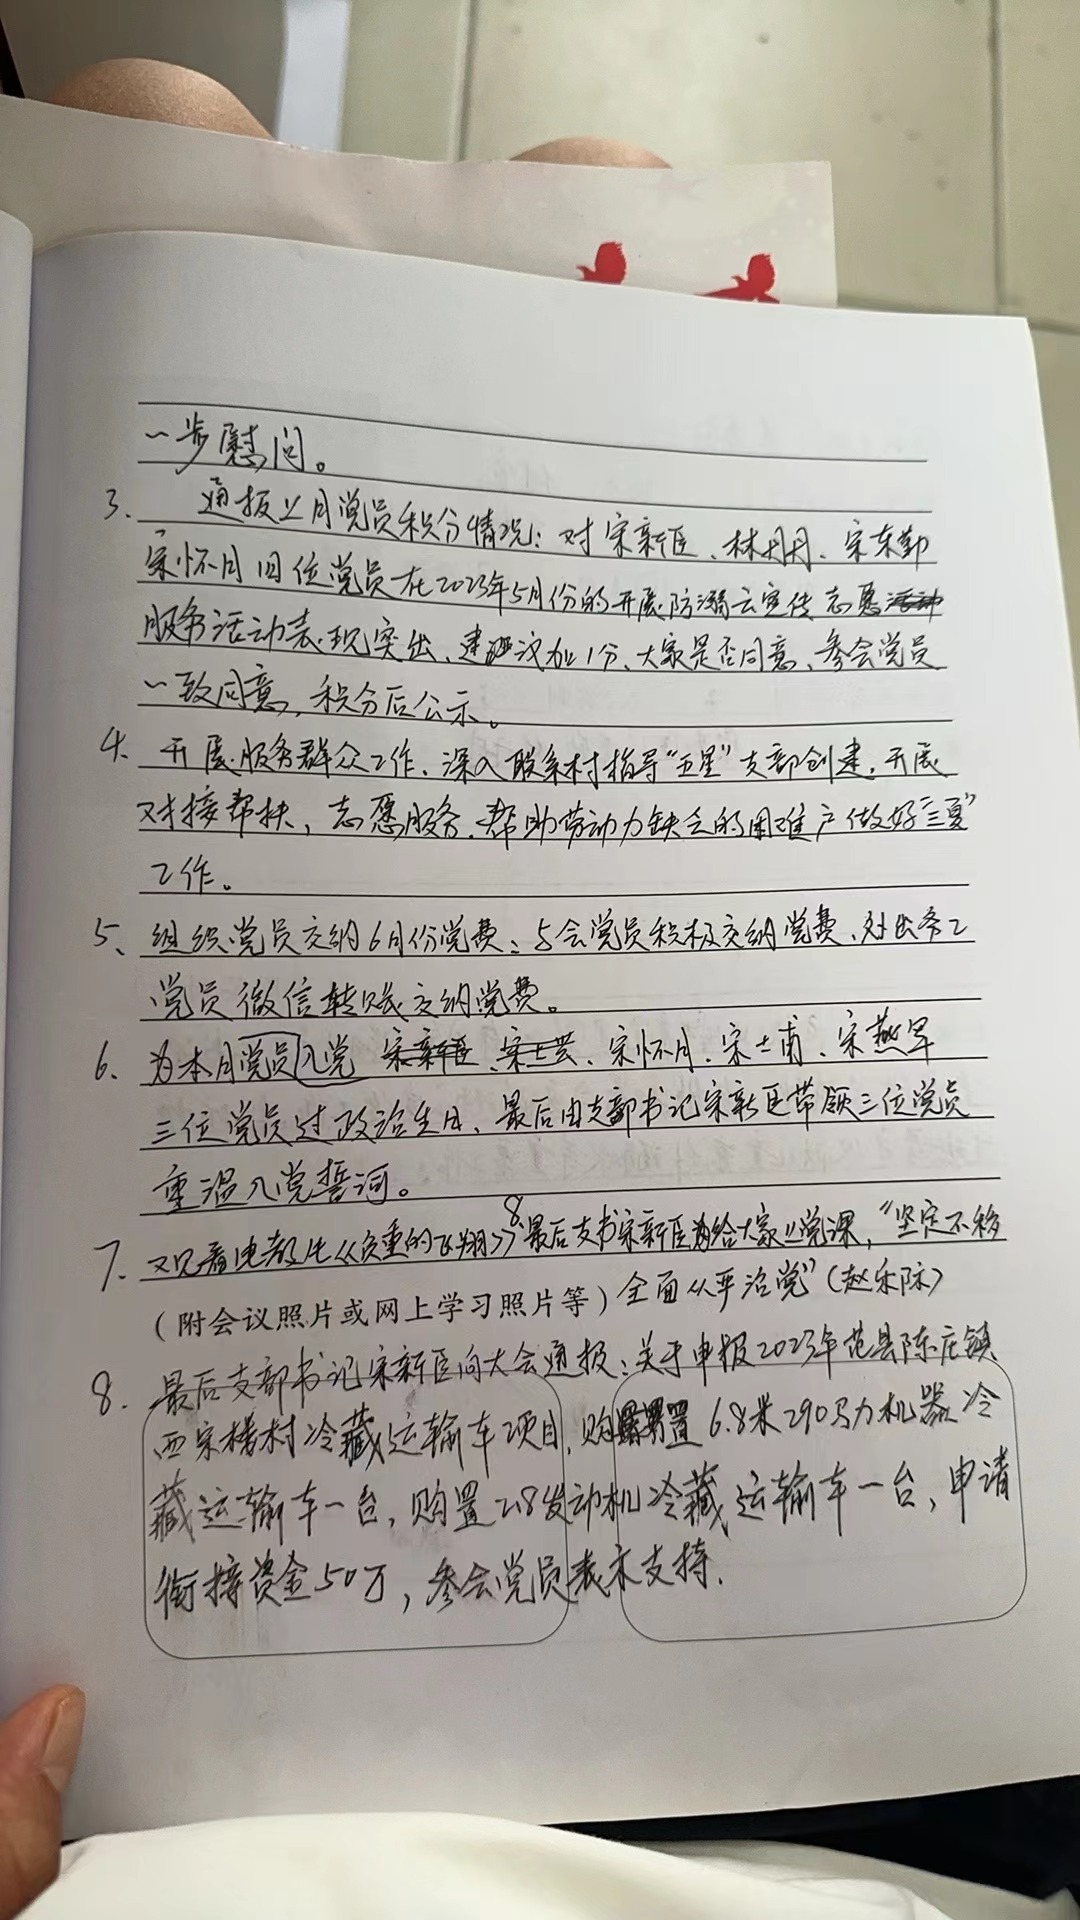 一步慰问。
3. 通报上月党员积分情况：对宋新臣、林丹丹、宋东勤
宋怀月四位党员在2023年5月份的开展防溺云宣传志愿
服务活动表现突出、建议加1分、大家是否同意、参会党员
一致同意，积分后公示。
4. 开展服务群众工作、深入联系村指导“五星”支部创建，开展
对接帮扶，志愿服务、帮助劳动力缺乏的困难户做好“三夏”
工作。
5、组织党员交纳6月份党费：与会党员积极交纳党费、对出务工
党员微信转账交纳党费。
6、为本月党员入党 宋新臣、宋士芸、宋怀月、宋士甫、宋燕军
三位党员过政治生日、最后由支部书记宋新臣带领三位党员
重温入党誓词。
7. 观看电教片《负重的飞翔》 8 最后支书宋新臣为给大家上党课，“坚定不移
（附会议照片或网上学习照片等）全面从严治党”（赵乐际）
8. 最后支部书记宋新臣向大会通报：关于申报2023年范县陈庄镇
西宋楼村冷藏运输车项目，购置6.8米290马力机器冷
藏运输车一台，购置2.8发动机冷藏运输车一台，申请
衔接资金50万，参会党员表示支持.